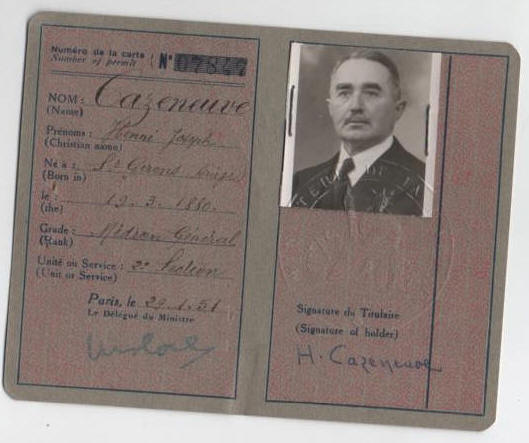 Numéro de la carte
Number of permit
N° 07847
NOM : Cazeneuve
(Name)
Prénoms : Henri Joseph
(Christian name)
Né à : St Girons Ariège
(Born in)
le : 19. 3. 1880.
(the)
Grade : Médecin Général
(Rank)
Unité ou Service : 2e Section
(Unit or Service)
Paris, le 29.1.51
Le Délégué du Ministre
Signature du Titulaire
(Signature of holder)
H. Cazeneuve